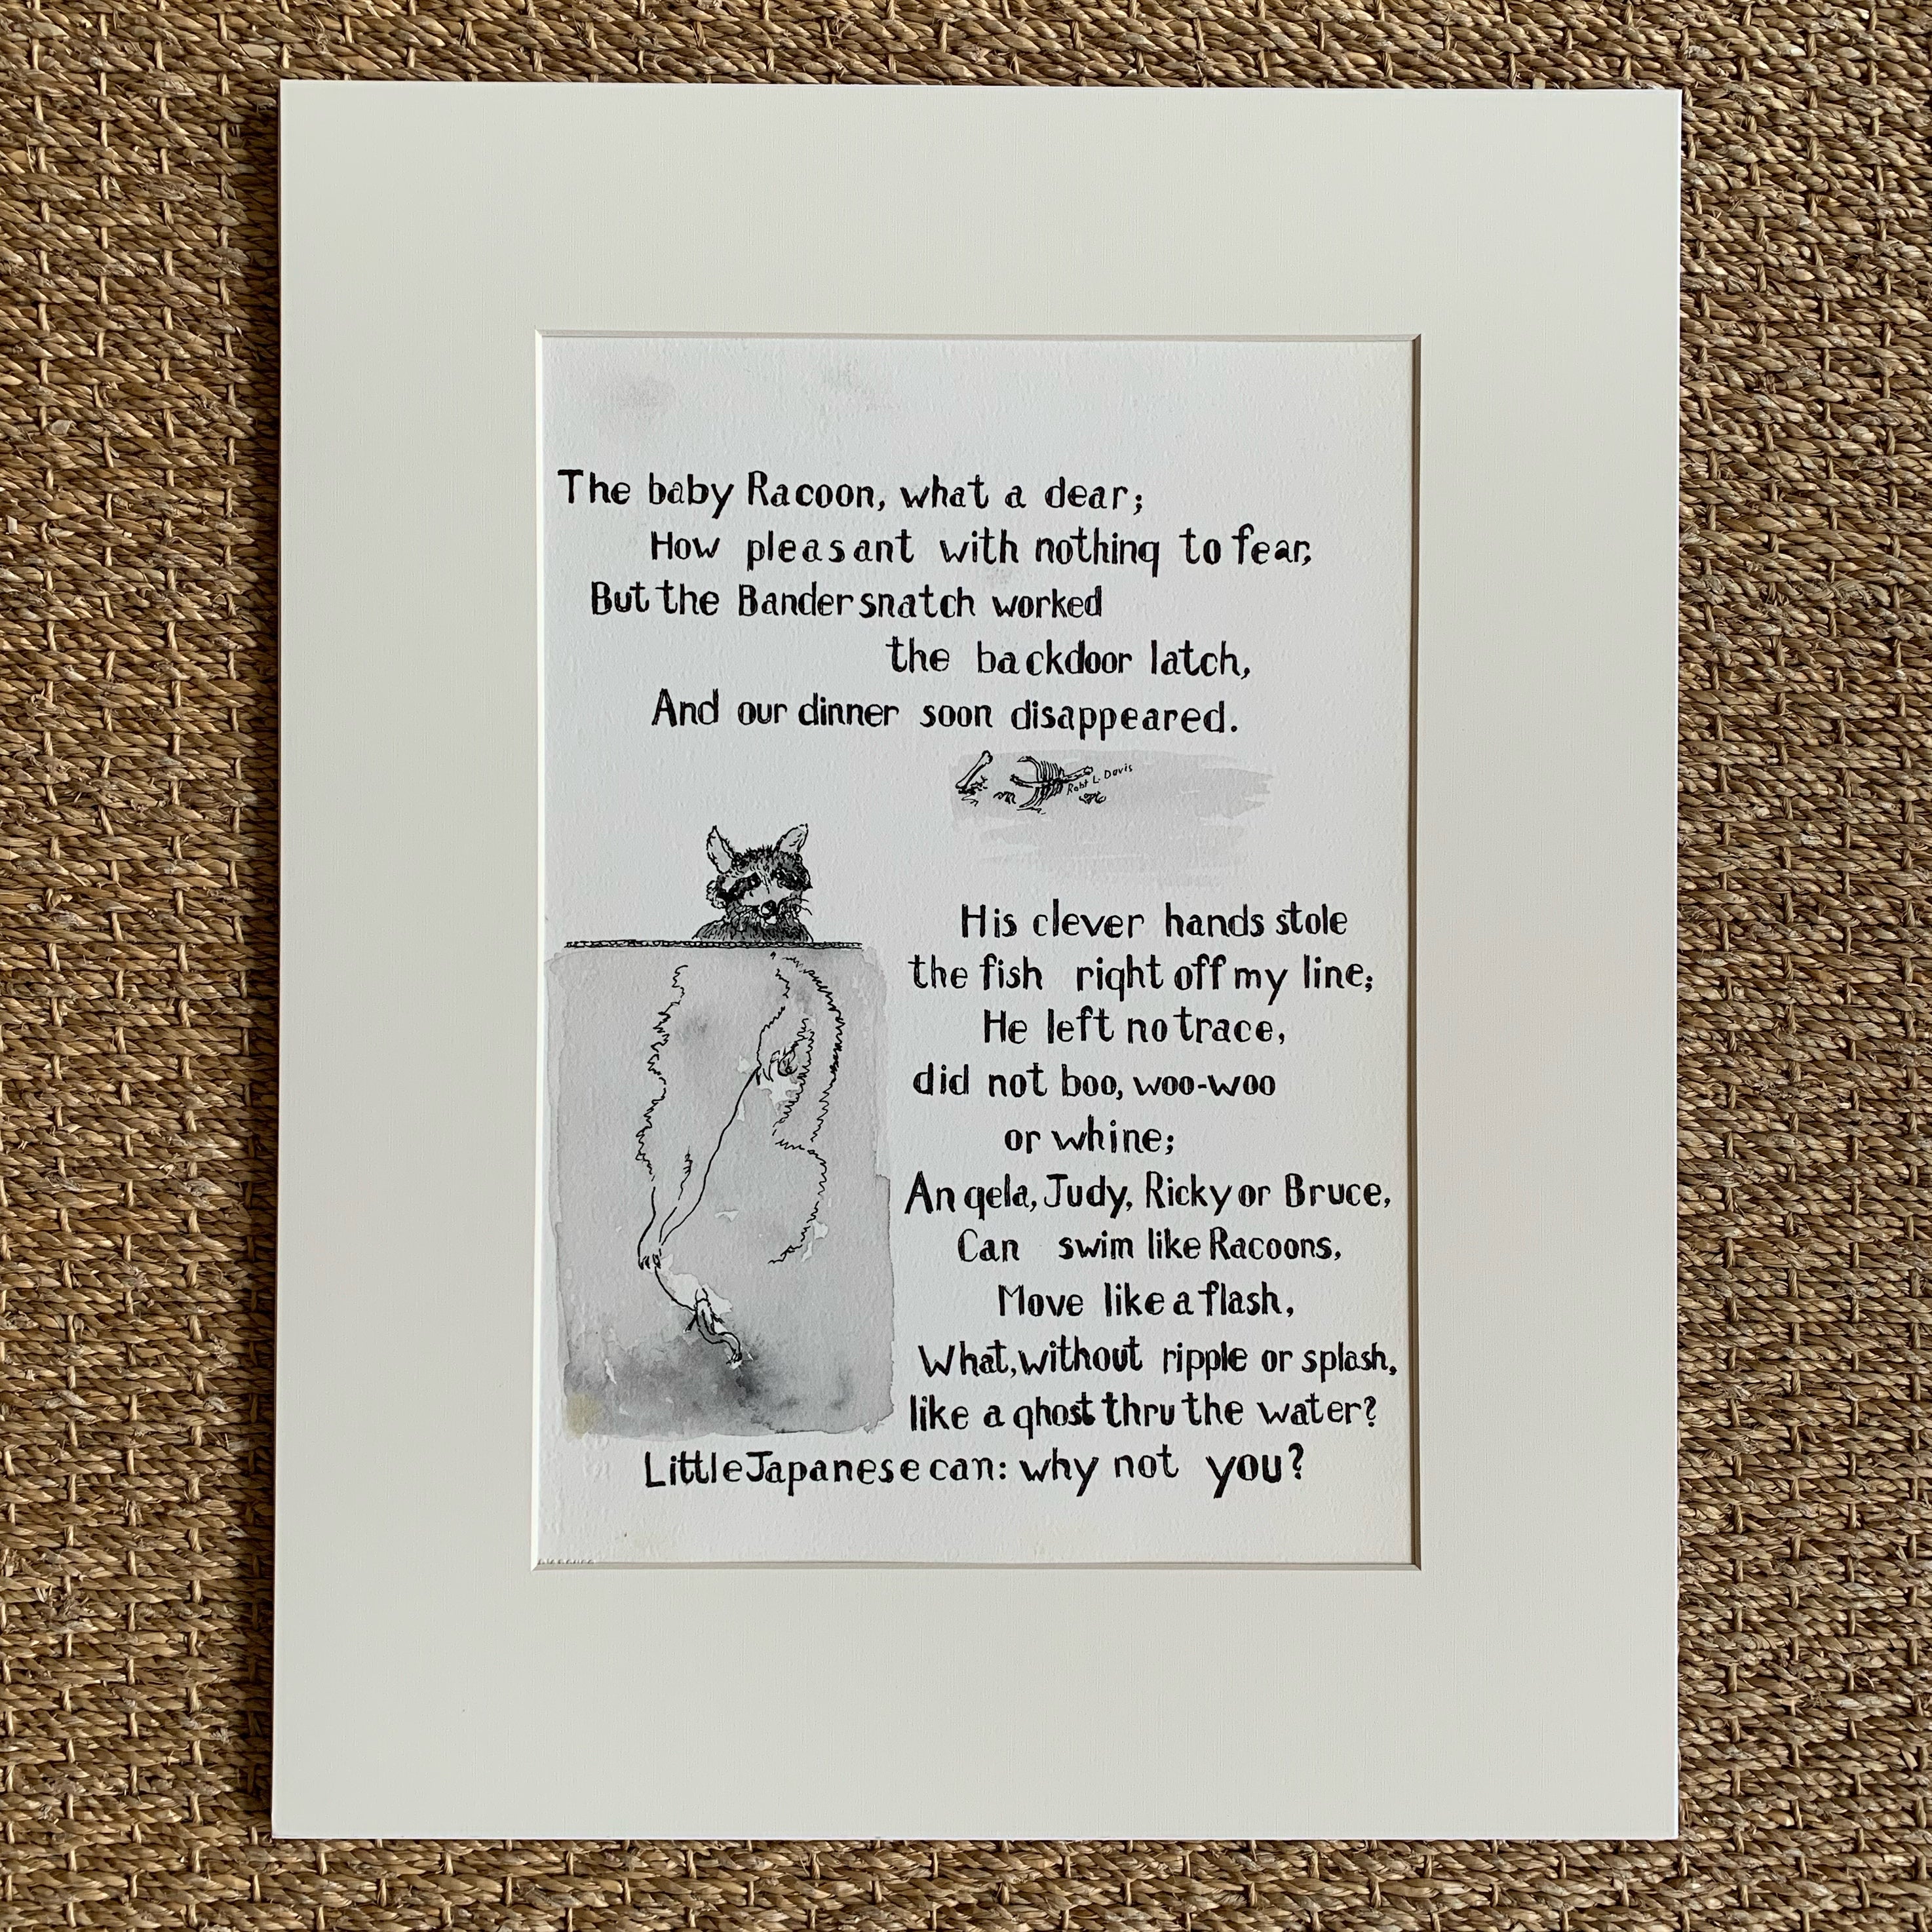 The baby Racoon, what a dear;
How pleasant with nothing to fear,
But the Bandersnatch worked
the backdoor latch,
And our dinner soon disappeared.
Robt L. Davis
His clever hands stole
the fish right off my line;
He left no trace,
did not boo, woo-woo
or whine;
Angela, Judy, Ricky or Bruce,
Can swim like Racoons,
Move like a flash,
What, without ripple or splash,
like a ghost thru the water?
Little Japanese can: why not you?